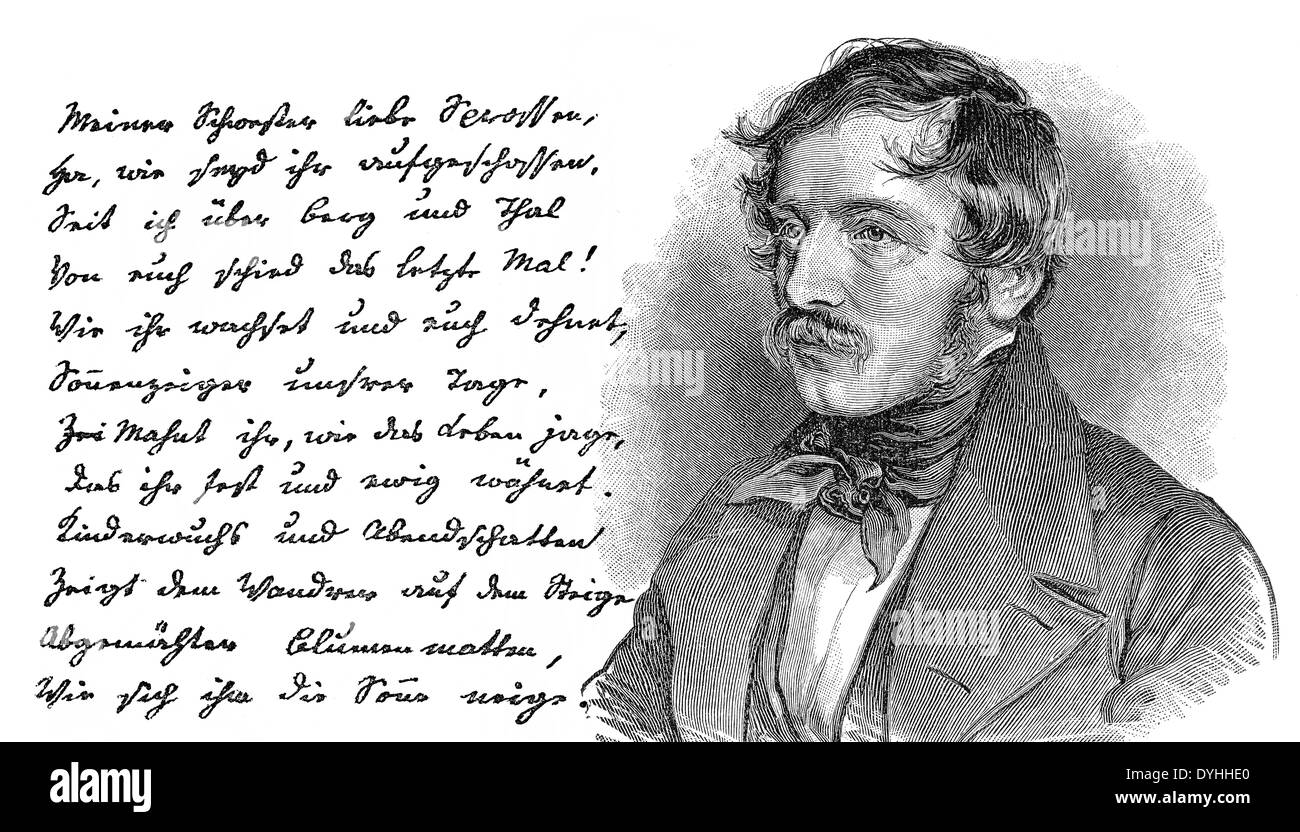 Meiner Schwester liebe Sprossen,
Ha, wie seyd ihr aufgeschossen,
Seit ich über Berg und Thal
Von euch schied das letzte Mal!
Wie ihr wachset und euch dehnet,
Soñenzeiger unsrer Tage,
Mahnt ihr, wie das Leben jage,
Das ihr fest und ewig wähnet.
Kinderwuchs und Abendschatten
Zeigt dem Wandrer auf dem Steige
Abgemähter Blumenmatten,
Wie sich ihm die Soñe neige.
alamy
alamy
alamy
a
a
a
alamy
Image ID: DYHHE0
www.alamy.com